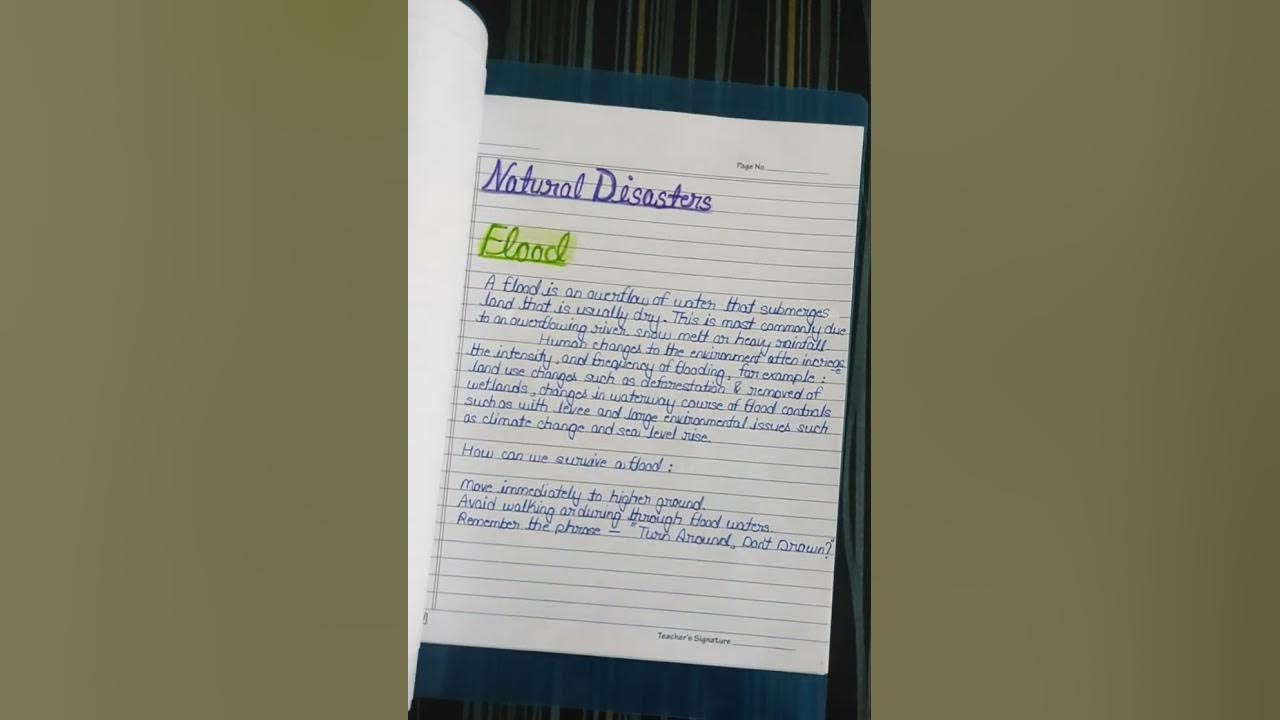 Page No.
Natural Disasters
Flood
A flood is an overflow of water that submerges
land that is usually dry. This is most commonly due
to an overflowing river, snow melt or heavy rainfall.
Human changes to the environment often increas
-e
the intensity, and frequency of flooding, for example :
land use changes such as deforestation & removed of
wetlands, changes in waterway course of flood controls
such as with levee and large environmental issues such
as climate change and sea level rise.
How can we survive a flood :
Move immediately to higher ground.
Avoid walking or during through flood waters.
Remember the phrase – "Turn Around, Don't Drown?"
Teacher's Signature